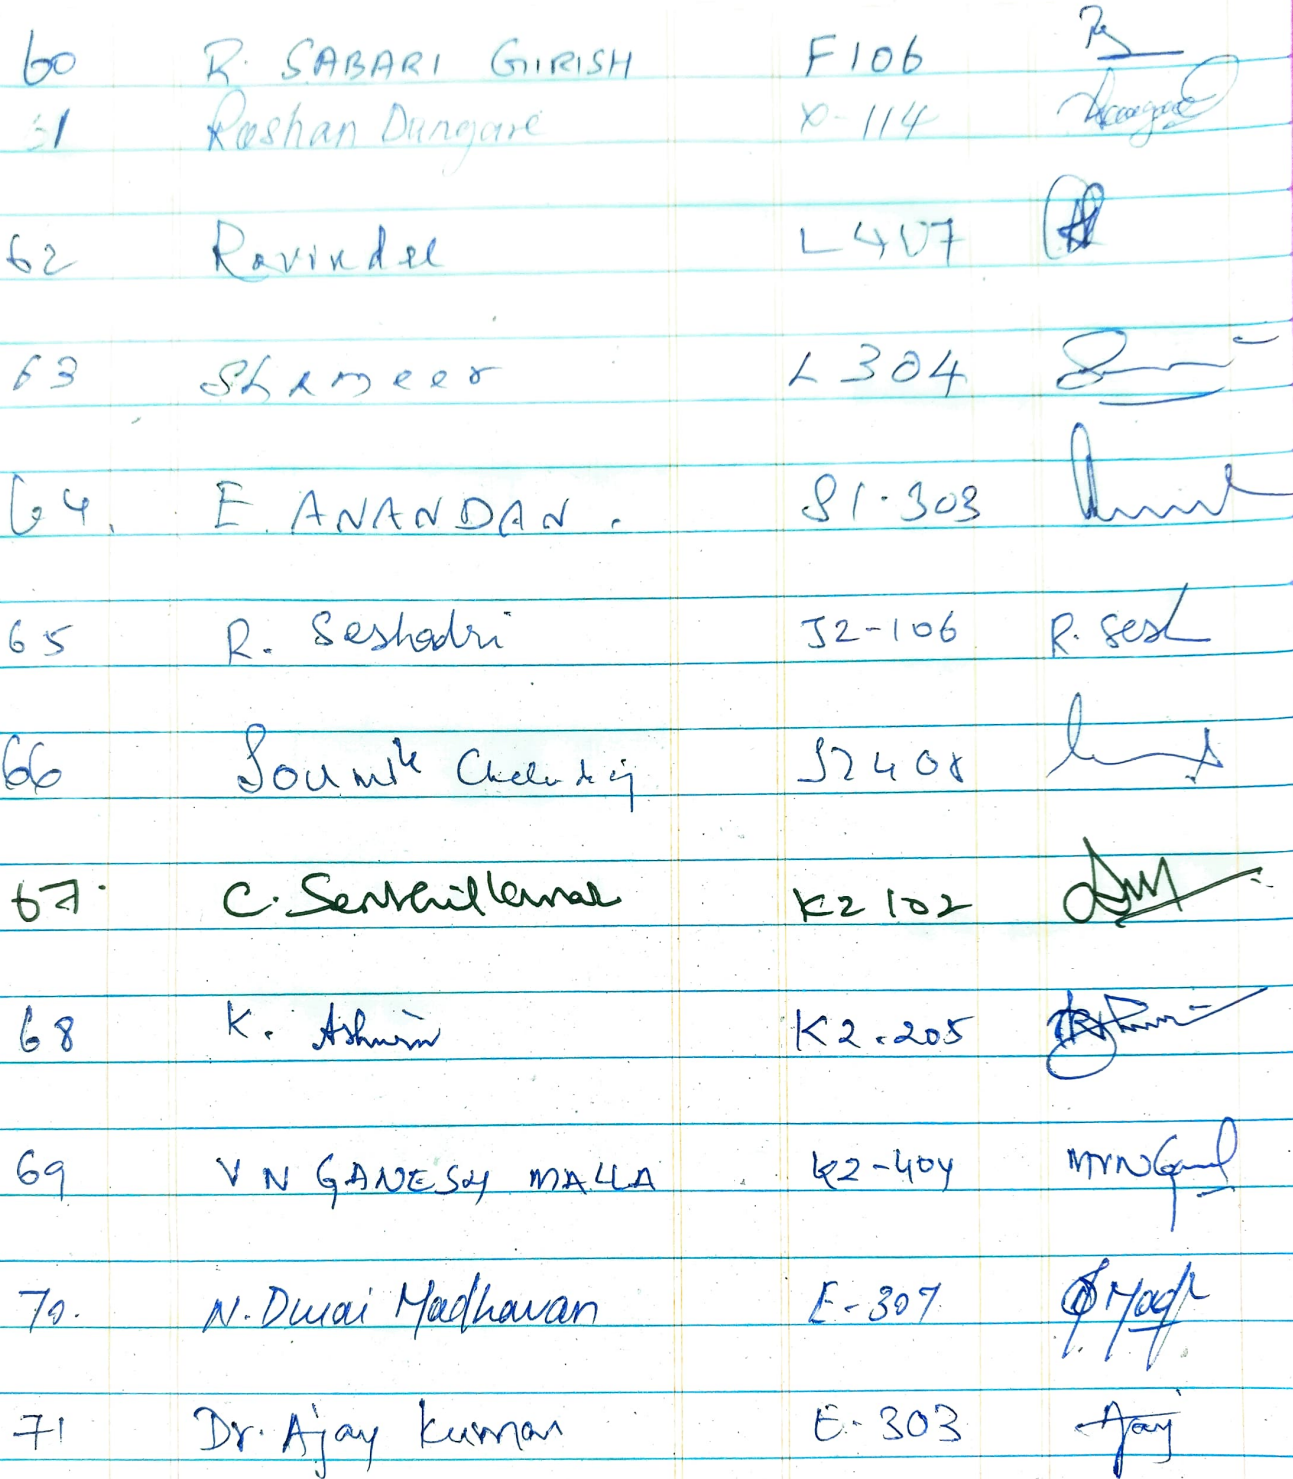 60 R. SABARI GIRISH F106
61 Roshan Dungare 114
62 Ravinder L407
63 Shameer L 304
64. E. ANANDAN. S1-303
65 R. Seshadri J2-106 R. Sesh
66 Soumik J2408
67. C. Senthilkumar K2 102
68 K. Ashwin K2-205
69 V N GANESH MALLA K2-404
70. N. Durai Madhavan E-307
71 Dr. Ajay Kumar E-303 Ajay